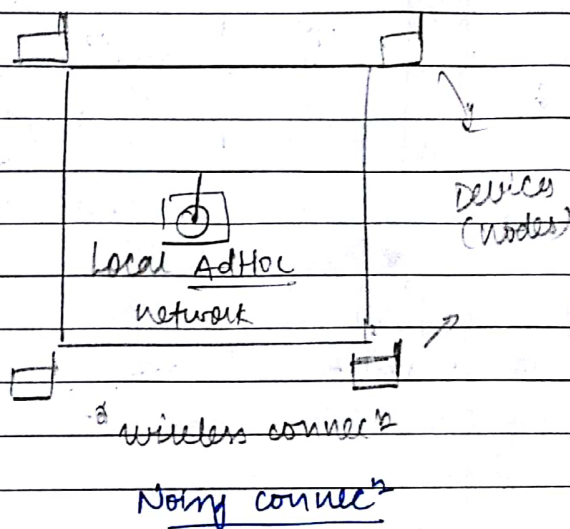 Devices
(nodes)
Local AdHoc
network
wireless connecⁿ
Noisy connecⁿ